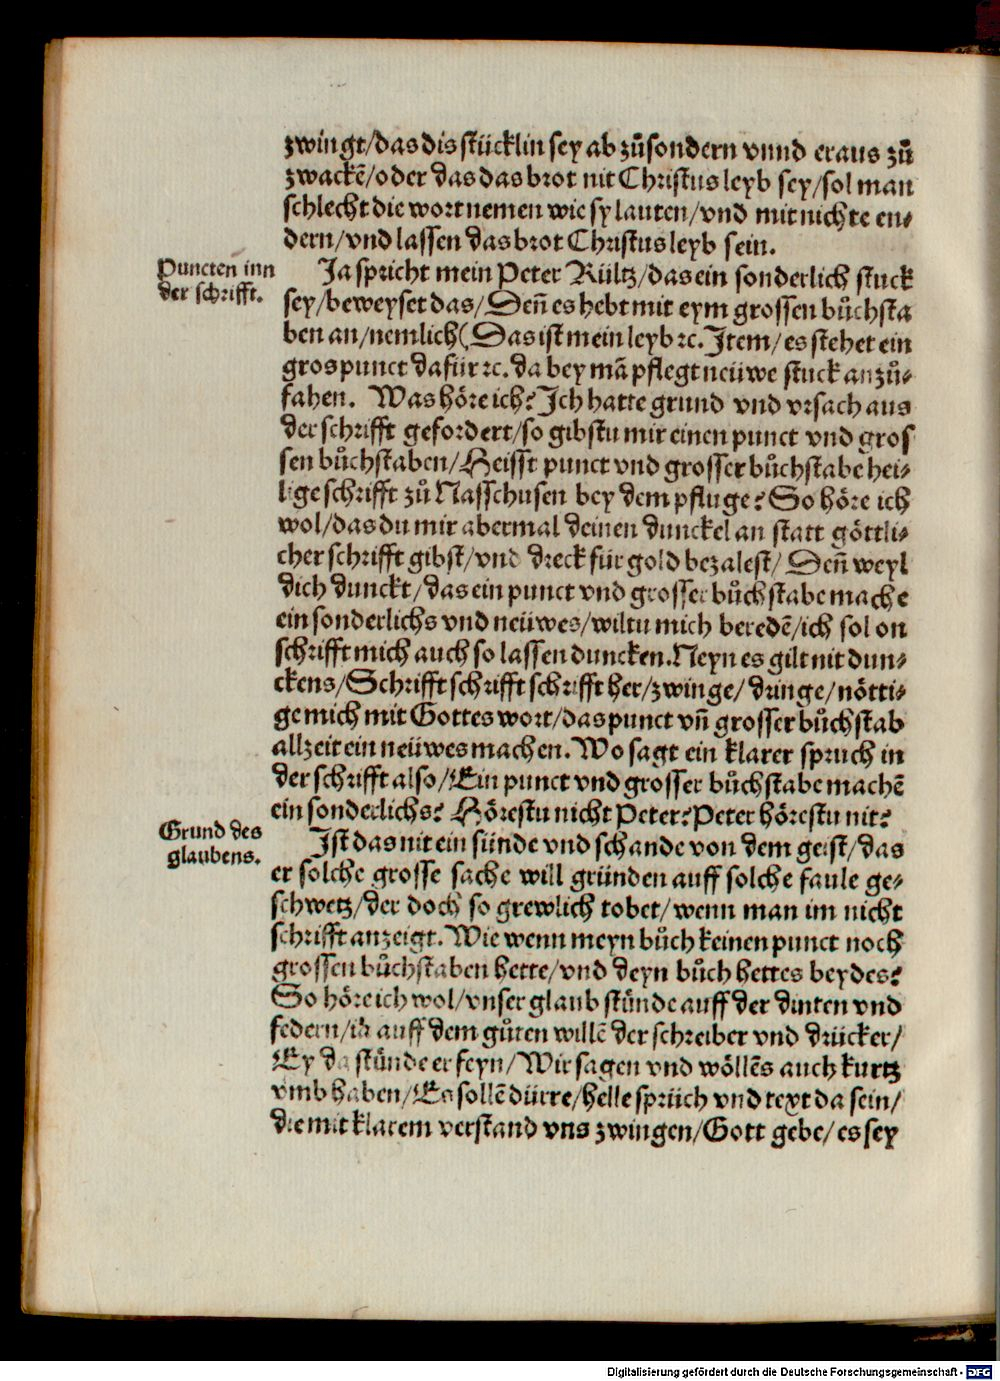 zwingt/das dis stücklin sey ab zůsondern vnnd eraus zů
zwackē/oder das das brot nit Christus leyb sey/sol man
schlecht die wort nemen wie sy lauten/vnd mit nichte en-
dern/vnd lassen das brot Christus leyb sein.
Puncten inn
der schrifft.
Ja spricht mein Peter Rültz/das ein sonderlich stuck
sey/beweyset das/Deñ es hebt mit eym grossen bůchsta
ben an/nemlich(Das ist mein leyb ꝛc. Item/es stehet ein
gros punct dafür ꝛc. da bey mã pflegt neüwe stuck anzů-
fahen. Was höre ich? Ich hatte grund vnd vrsach aus
der schrifft gefordert/so gibstu mir einen punct vnd gros
sen bůchstaben/Heisst punct vnd grosser bůchstabe hei-
lige schrifft zů Nasschusen bey dem pfluge? So höre ich
wol/das du mir abermal deinen dunckel an statt göttli-
cher schrifft gibst/vnd dreck für gold bezalest/Deñ weyl
dich dunckt/das ein punct vnd grosser bůchstabe mache
ein sonderlichs vnd neüwes/wiltu mich beredē/ich sol on
schrifft mich auch so lassen duncken. Neyn es gilt nit dun-
ckens/Schrifft schrifft schrifft her/zwinge/dringe/nötti-
ge mich mit Gottes wort/das punct vñ grosser bůchstab
allzeit ein neüwes machen. Wo sagt ein klarer spruch in
der schrifft also/Ein punct vnd grosser bůchstabe machē
ein sonderlichs? Hörestu nicht Peter? Peter hörestu nit?
Grund des
glaubens.
Ist das nit ein sünde vnd schande von dem geist/das
er solche grosse sache will gründen auff solche faule ge-
schwetz/der doch so grewlich tobet/wenn man im nicht
schrifft anzeigt. Wie wenn meyn bůch keinen punct noch
grossen bůchstaben hette/vnd deyn bůch hettes beydes?
So höre ich wol/vnser glaub stünde auff der dinten vnd
federn/ia auff dem gůten willē der schreiber vnd drücker/
Ey da stünde er feyn/Wir sagen vnd wöllēs auch kurtz
vmb haben/Es sollē dürre/helle sprüch vnd text da sein/
die mit klarem verstand vns zwingen/Gott gebe/es sey
Digitalisierung gefördert durch die Deutsche Forschungsgemeinschaft - DFG